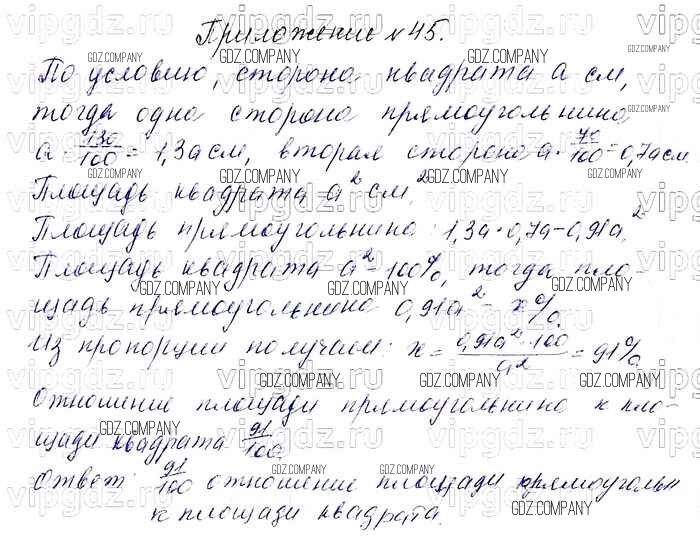 Приложение №45.
По условию, сторона квадрата a см,
тогда одна сторона прямоугольника
a · 130/100 = 1,3a см, вторая сторона a · 70/100 = 0,7a см
Площадь квадрата a² см.²
Площадь прямоугольника: 1,3a · 0,7a = 0,91a²
Площадь квадрата a² – 100%, тогда пло-
щадь прямоугольника 0,91a² – x%.
Из пропорции получаем: x = 0,91a² · 100 / a² = 91%
Отношение площади прямоугольника к пло-
щади квадрата 91/100.
Ответ: 91/100 отношение площади прямоугольн
к площади квадрата.
vipgdz.ru
GDZ.COMPANY